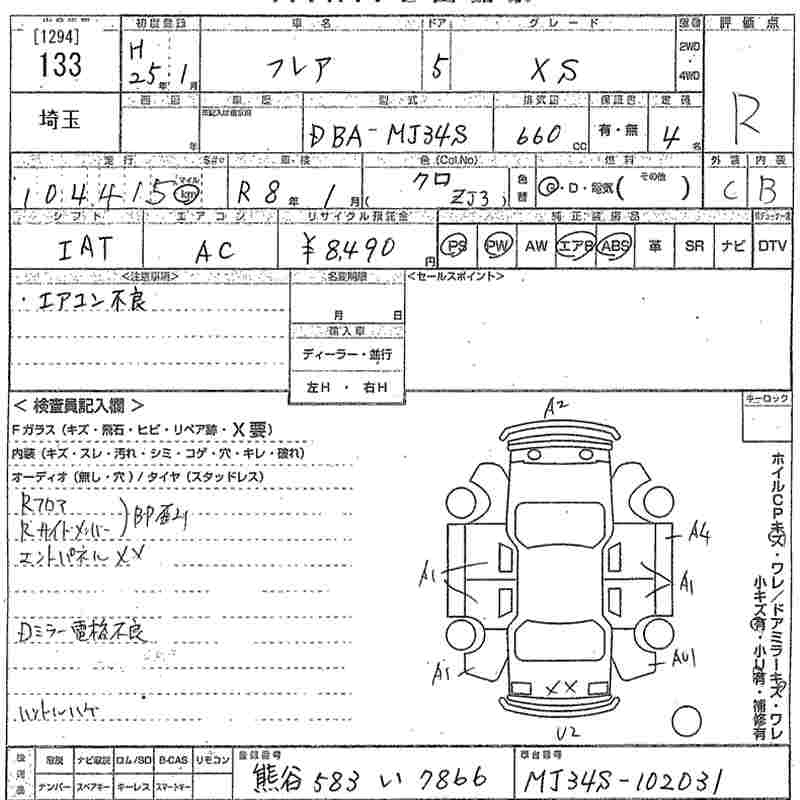 [1294]
133
初度登録
H
25年 1月
車名
フレア
ドア
5
グレード
XS
2WD
4WD
評価点
R
埼玉
車歴
型式
DBA-MJ34S
排気量
660 CC
保証書
有・無
定員
4名
走行
104415 マイル km
車検
R8年 1月
色(Col.No)
クロ
(ZJ3)
色替
燃料
G・D・電気( その他 )
外装
C
内装
B
シフト
IAT
エアコン
AC
リサイクル預託金
¥8,490円
純正装備品
PS PW AW エアB ABS 革 SR ナビ DTV
<注意事項>
・エアコン不良
名変期限
月 日
輸入車
ディーラー・並行
左H ・ 右H
<セールスポイント>
< 検査員記入欄 >
Fガラス (キズ・飛石・ヒビ・リペア跡・X要)
内装 (キズ・スレ・汚れ・シミ・コゲ・穴・キレ・破れ)
オーディオ (無し・穴) / タイヤ (スタッドレス)
Rフロア
Rサイドメンバー
エンドパネルXX
Dミラー電格不良
キーロック
A2
A4
A1
A1
A1
AU1
XX
U2
ホイルCPキズ・ワレ/ドアミラーキズ・ワレ
小キズ有・小U有・補修有
取説 ナビ取説 ロム/SD B-CAS リモコン
ナンバー スペアキー キーレス スマートキー
登録番号
熊谷 583 い 7866
車台番号
MJ34S-102031